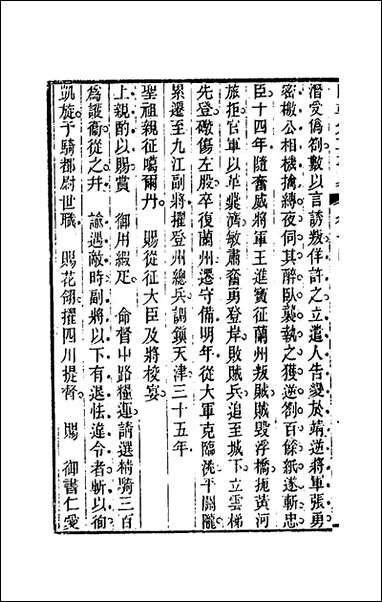 潛受偽劄數以言誘叛佯許之立遣人告變於靖逆將軍張勇
密檄公相機擒縛夜伺其醉臥襲執之獲逆劄百餘紙遂斬忠
臣十四年隨奮威將軍王進寶征蘭州叛賊賊毀浮橋扼黃河
旅拒官軍以革濟敏肅奮勇登岸敗賊兵追至城下立雲梯
先登礮傷左股卒復蘭州遷守備明年從大軍克臨洮平關隴
累遷至九江副將擢登州總兵調鎮天津三十五年
聖祖親征噶爾丹 賜從征大臣及將校宴
上親酌以賜賞 御用緞疋 命督中路糧運請選精騎三百
為護衞從之幷 諭遇敵時副將以下有退怯違令者斬以徇
凱旋予騎都尉世職 賜花翎擢四川提督 賜 御書仁愛